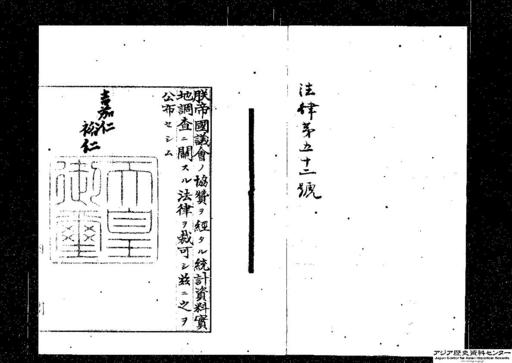 法律第五十二號
朕帝國議會ノ協贊ヲ經タル統計資料實
地調査ニ關スル法律ヲ裁可シ茲ニ之ヲ
公布セシム
嘉仁
裕仁
天皇
御璽
アジア歴史資料センター
Japan Center for Asian Historical Records